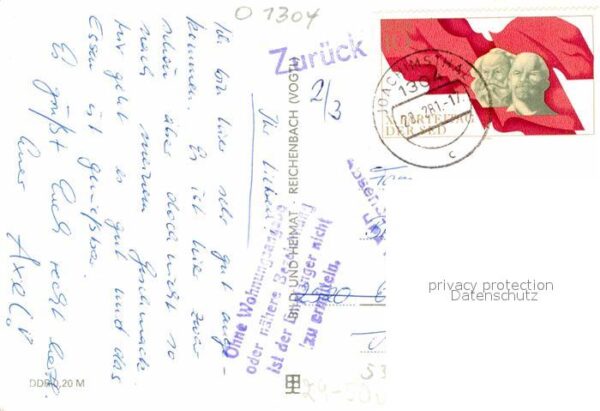 O 1304
Zurück
2/3
JOACHIMSTHAL
1304
28.-2.81.-17
c
X. PARTEITAG
DER SED
Ihr Lieben!
Ich bin hier sehr gut ange-
kommen. Es ist hier zwar
schön aber doch nicht so
nach meinem Geschmack.
Mir geht es gut und das
Essen ist genießbar.
Es grüßt Euch recht herzl.
Euer Axel!
BILD UND HEIMAT REICHENBACH (VOGTL)
Ohne Wohnungsangabe
oder nähere Bezeichnung
ist der Empfänger nicht
zu ermitteln.
privacy protection
Datenschutz
DDR 0,20 M